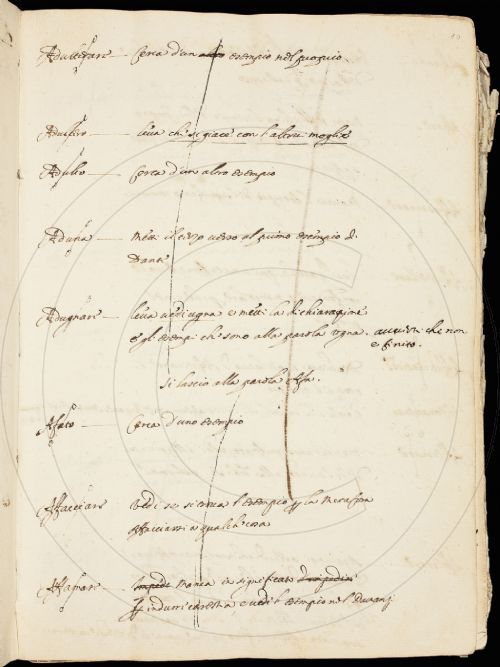 Adulterare — Cerca d'un altro esempio nel proprio.
Adultero — leva che si giace con l'altrui moglie
Adusto — Cerca d'un altro esempio
Aduna — metti il verso al primo esempio di
Dante
Adugnare — leva vedi ugna e metti la dichiarazione
e gl'esempi che sono alla parola ugna. che non
è finito.
si lasciò alla parola Afa.
Afato — Cerca d'uno esempio
Affacciare — Vedi se si cerca l'esempio la metafora
Affacciarsi a qualche cosa
Affamare — manca il significato
indurre carestia e vedi l'esempio nel Davanz